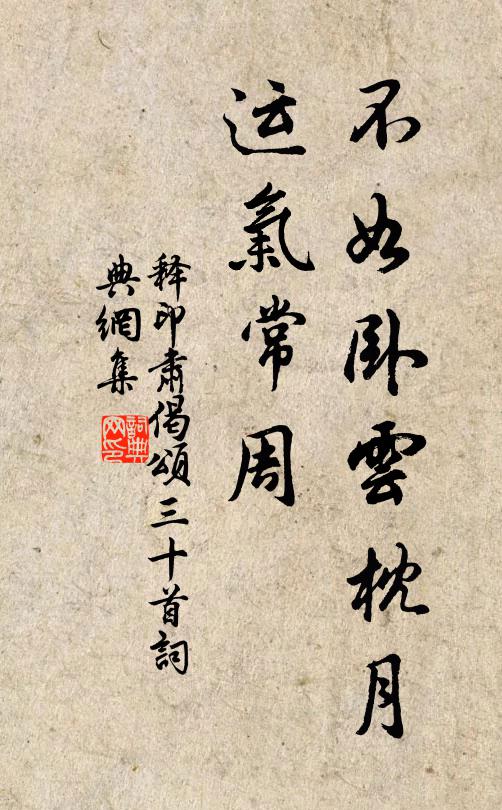 不如卧雲枕月
运氣常周
释印肃偈頌三十首詞
典網集
詞典
网印